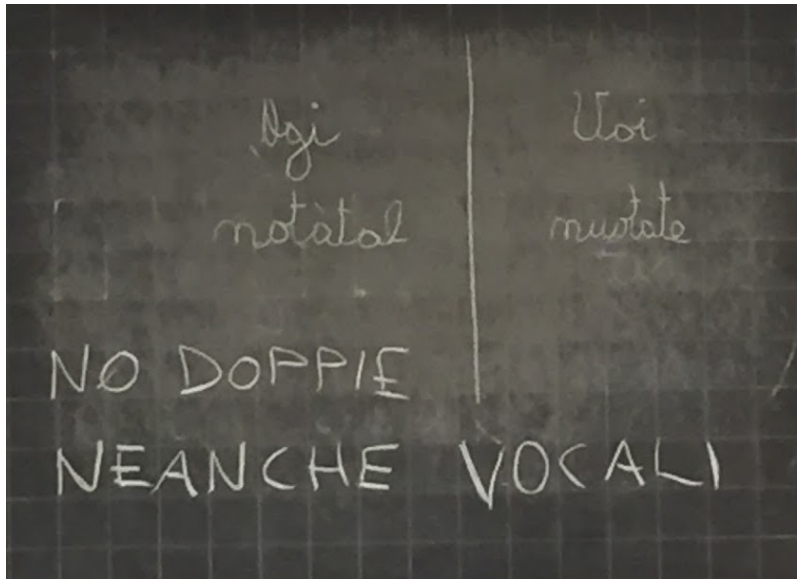 Agi Voi
notàtol nuotate
NO DOPPIE
NEANCHE VOCALI